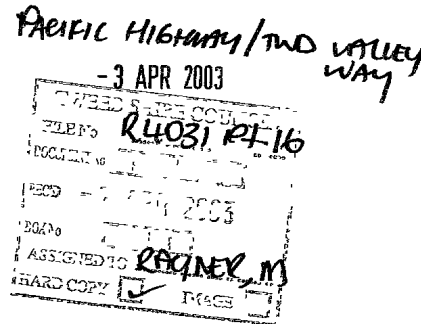 PACIFIC HIGHWAY/TWD VALLEY
WAY
- 3 APR 2003
TWEED SHIRE COUNCIL
FILE No R4031 Pt 16
DOCUMENT No
REC'D - 3 APR 2003
BOX No
ASSIGNED TO RAYNER, M
HARD COPY ✓ IMAGE